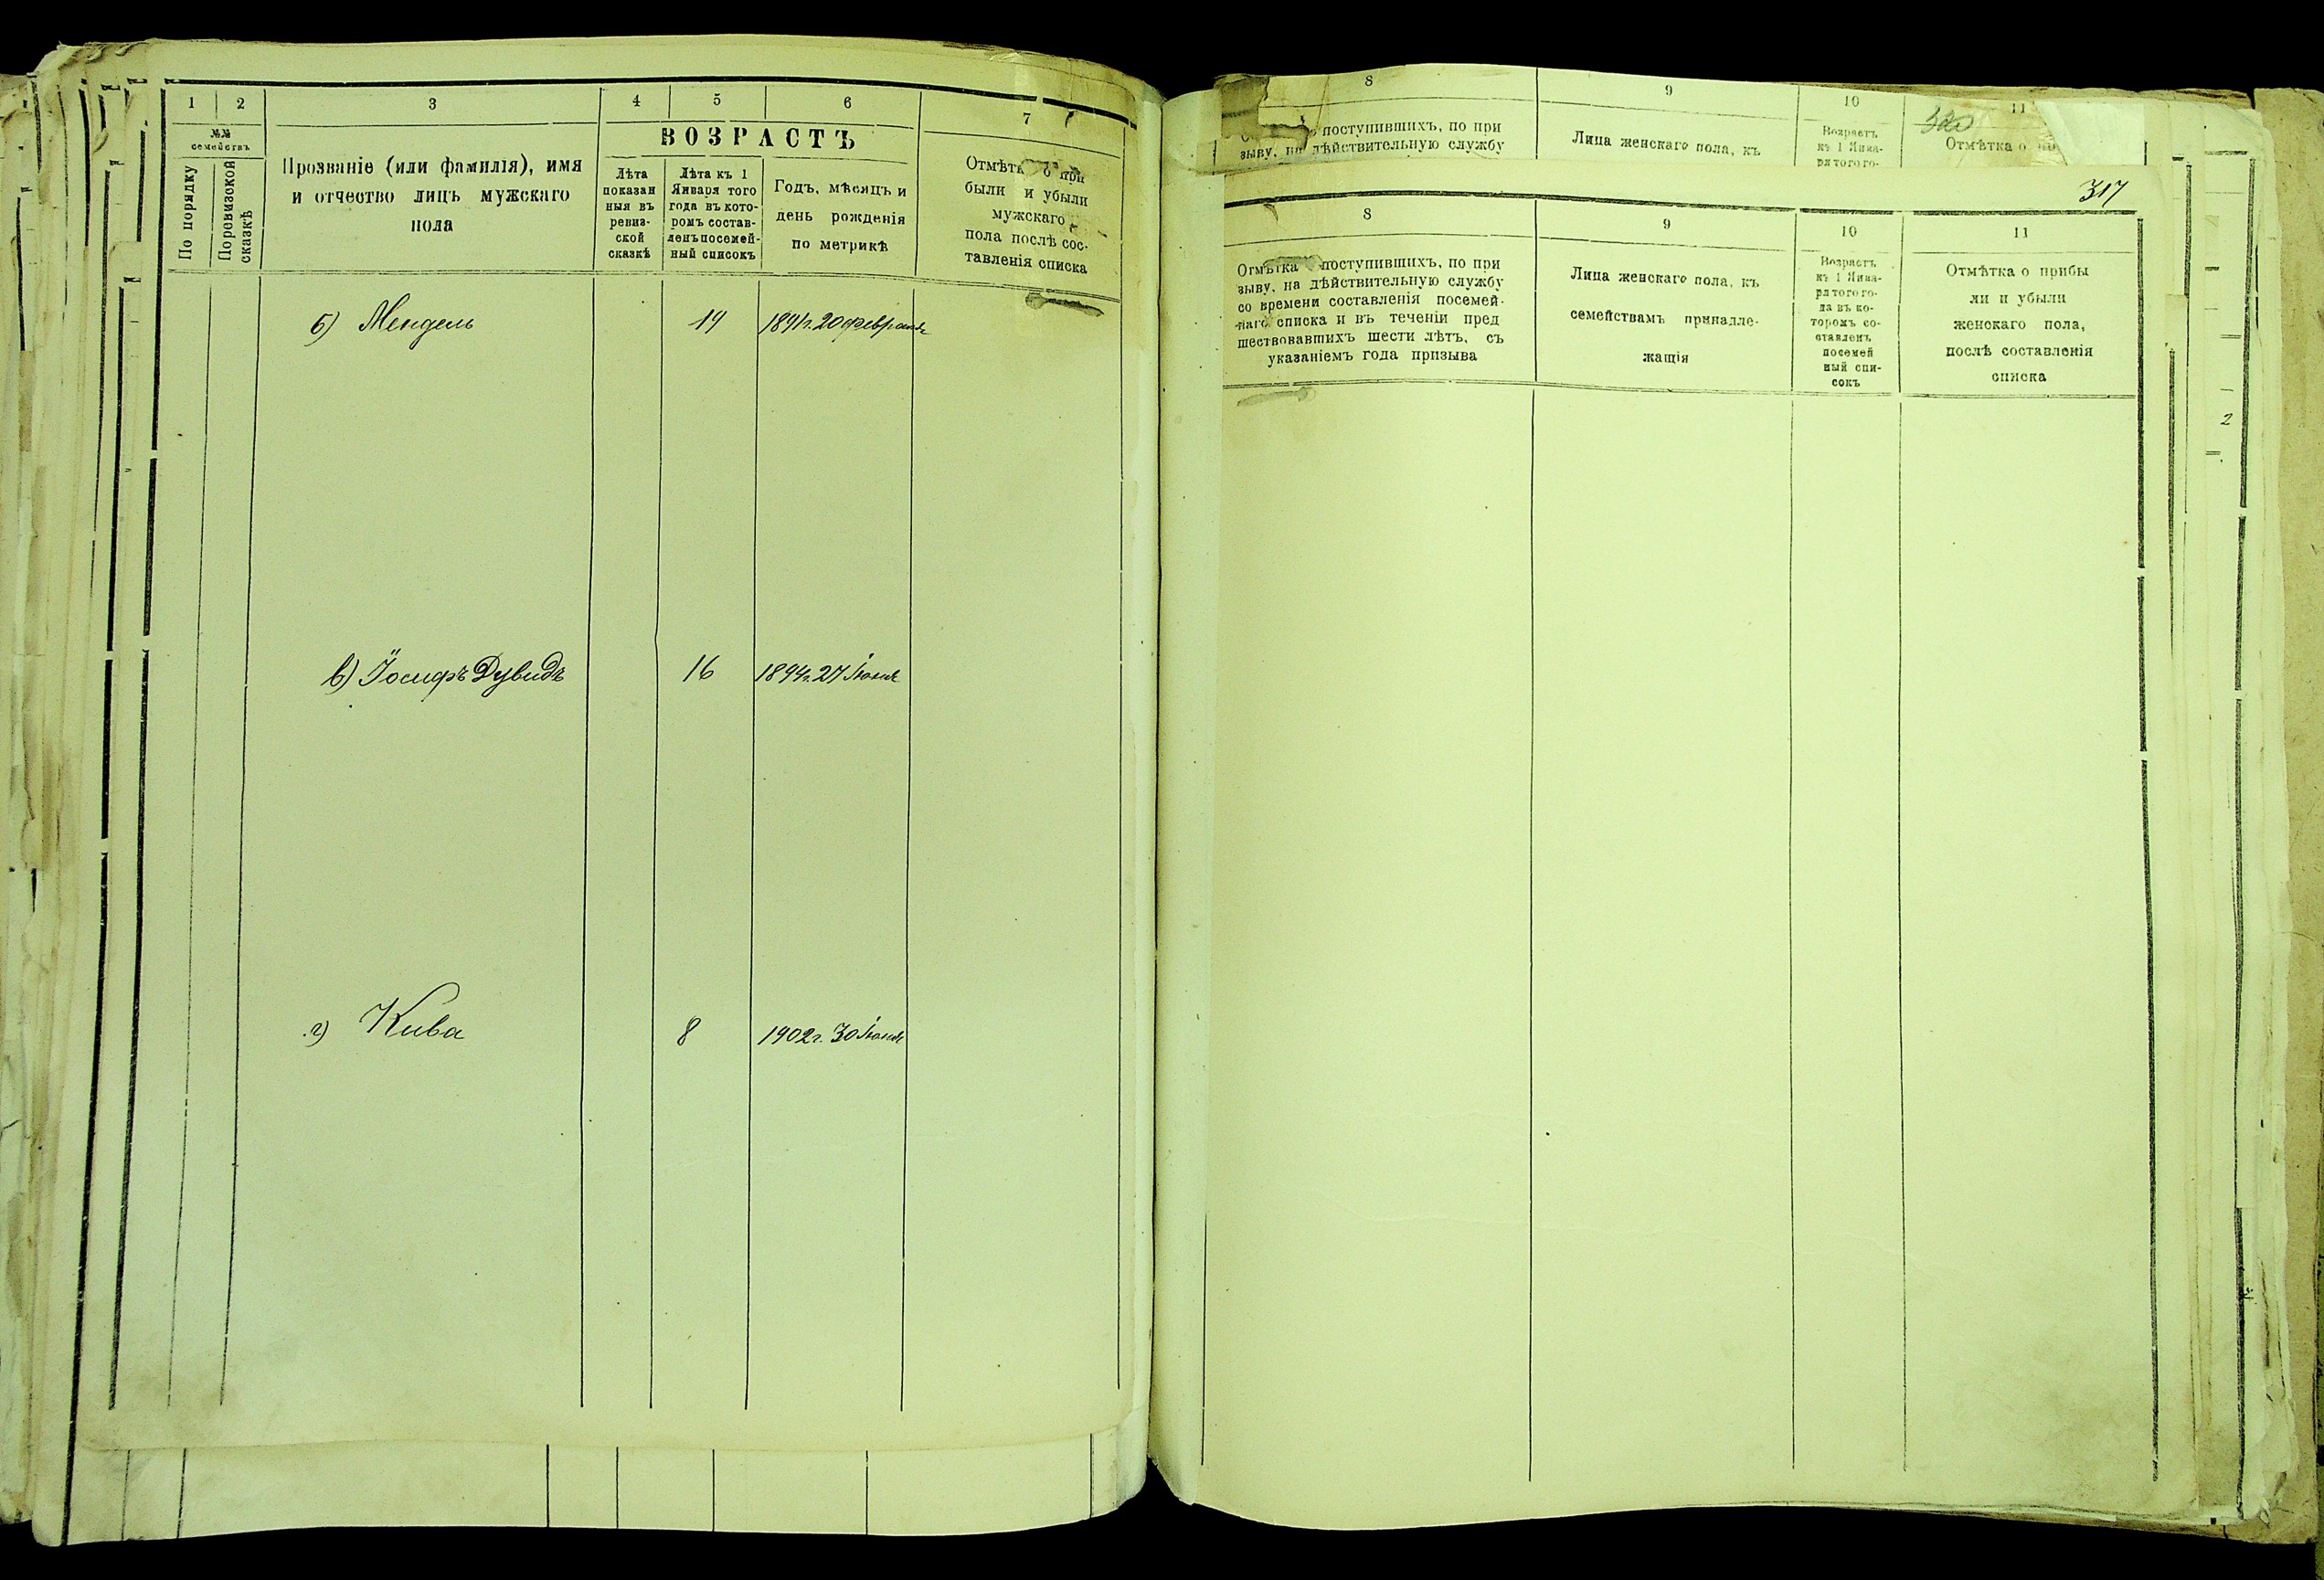 1 2 3 4 5 6 7
№№ семействъ
По порядку
По ревизской сказкѣ
Прозваніе (или фамилія), имя
и отчество лицъ мужскаго
пола
ВОЗРАСТЪ
Лѣта
показан
ныя въ
ревиз-
ской
сказкѣ
Лѣта къ 1
Января того
года въ кото-
ромъ состав-
ленъ посемей-
ный списокъ
Годъ, мѣсяцъ и
день рожденія
по метрикѣ
Отмѣтк о при
были и убыли
мужскаго
пола послѣ сос-
тавленія списка
б) Мендель 19 1891г. 20 февраля
в) Іосифъ Дувидъ 16 1894г. 27 Іюня
г) Кива 8 1902г. 30 Іюня
8 9 10 11
поступившихъ, по при
зыву, на дѣйствительную службу
Лица женскаго пола, къ
Возрастъ
къ 1 Янва-
ря того го-
Отмѣтка о
317
8 9 10 11
Отмѣтка поступившихъ, по при
зыву, на дѣйствительную службу
со времени составленія посемей-
наго списка и въ теченіи пред
шествовавшихъ шести лѣтъ, съ
указаніемъ года призыва
Лица женскаго пола, къ
семействамъ принадле-
жащія
Возрастъ
къ 1 Янва-
ря того го-
да въ ко-
торомъ со-
ставленъ
посемей
ный спи-
сокъ
Отмѣтка о прибы
ли и убыли
женскаго пола,
послѣ составленія
списка
2